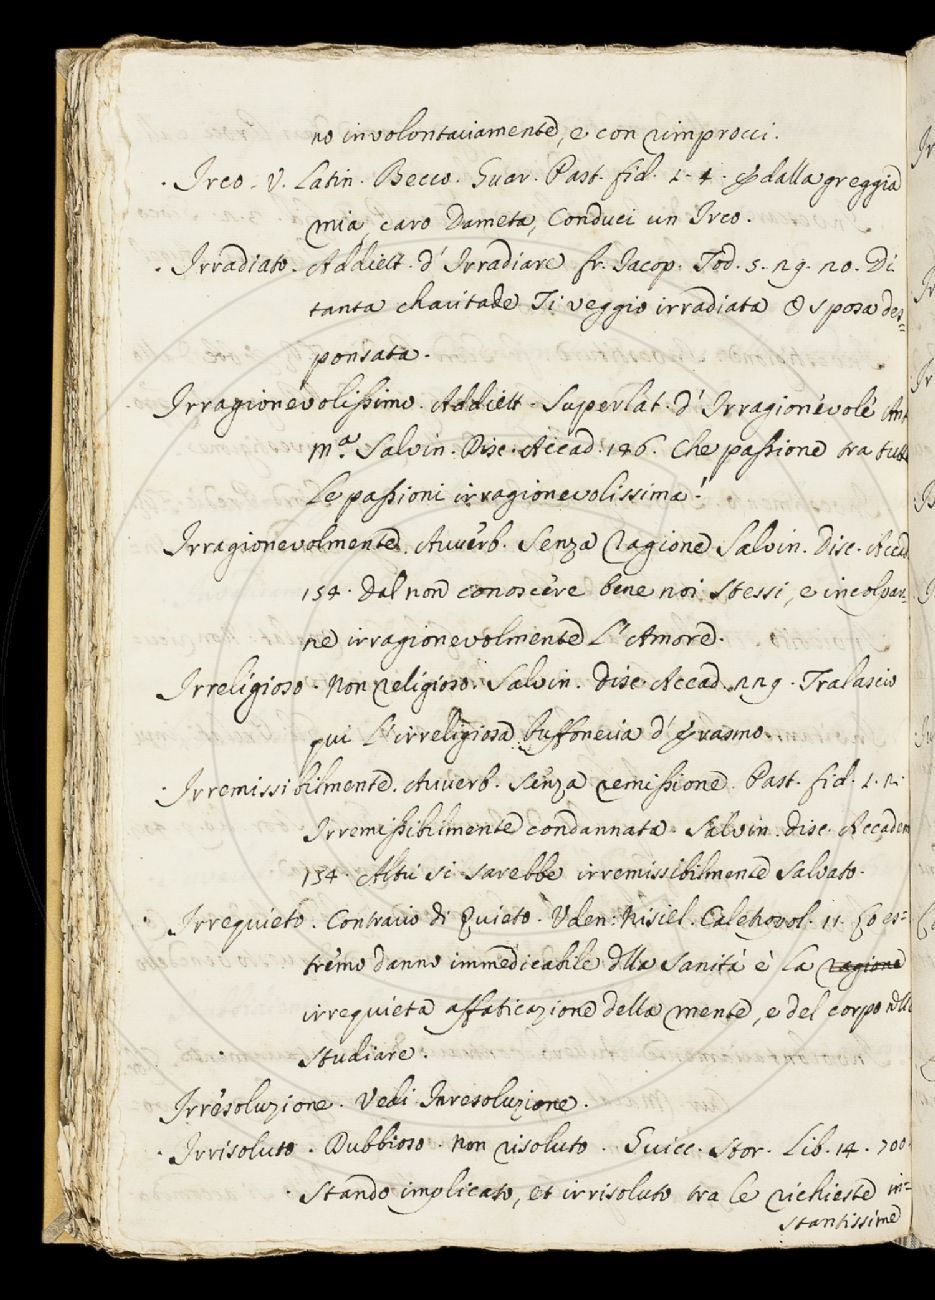 no involontariamente, e con rimprocci.
Irco. V. Latin. Becco. Guar. Past. fid. 1. 4. E dalla greggia
mia, caro Dameta, Conduci un Irco.
Irradiato. Addiett. d' Irradiare fr. Iacop. Tod. 5. 29. 20. Di
tanta charitade Ti veggio irradiata O sposa des=
ponsata.
Irragionevolissimo. Addiett. Superlat. d' Irragionevole Ant
M.ª Salvin. Disc. Accad. 186. Che passione tra tutte
Le passioni irragionevolissima!
Irragionevolmente. Avverb. Senza ragione Salvin. Disc. Accad
154. Dal non conoscere bene noi stessi, e incolpar=
ne irragionevolmente L' Amore.
Irreligioso. Non religioso. Salvin. Disc Accad. 229. Tralascio
qui L' irreligiosa buffoneria d' Erasmo.
Irremissibilmente. Avverb. Senza remissione. Past. fid. 1. 2.
Irremissibilmente condannata. Salvin. disc. Accadem
154. Altri si sarebbe irremissibilmente salvato.
Irrequieto. Contrario di Quieto. Uden: Nisiel. 11. Lo es=
tremo danno immedicabile dlla sanità è la ragione
irrequieta affaticazione della mente, e del corpo nllo
studiare.
Irresoluzione. Vedi Inresoluzione.
Irrisoluto. Dubbioso. Non risoluto. Guicc. Stor. Lib. 14. 700.
Stando implicato, et irrisoluto tra le richieste in=
stantissime